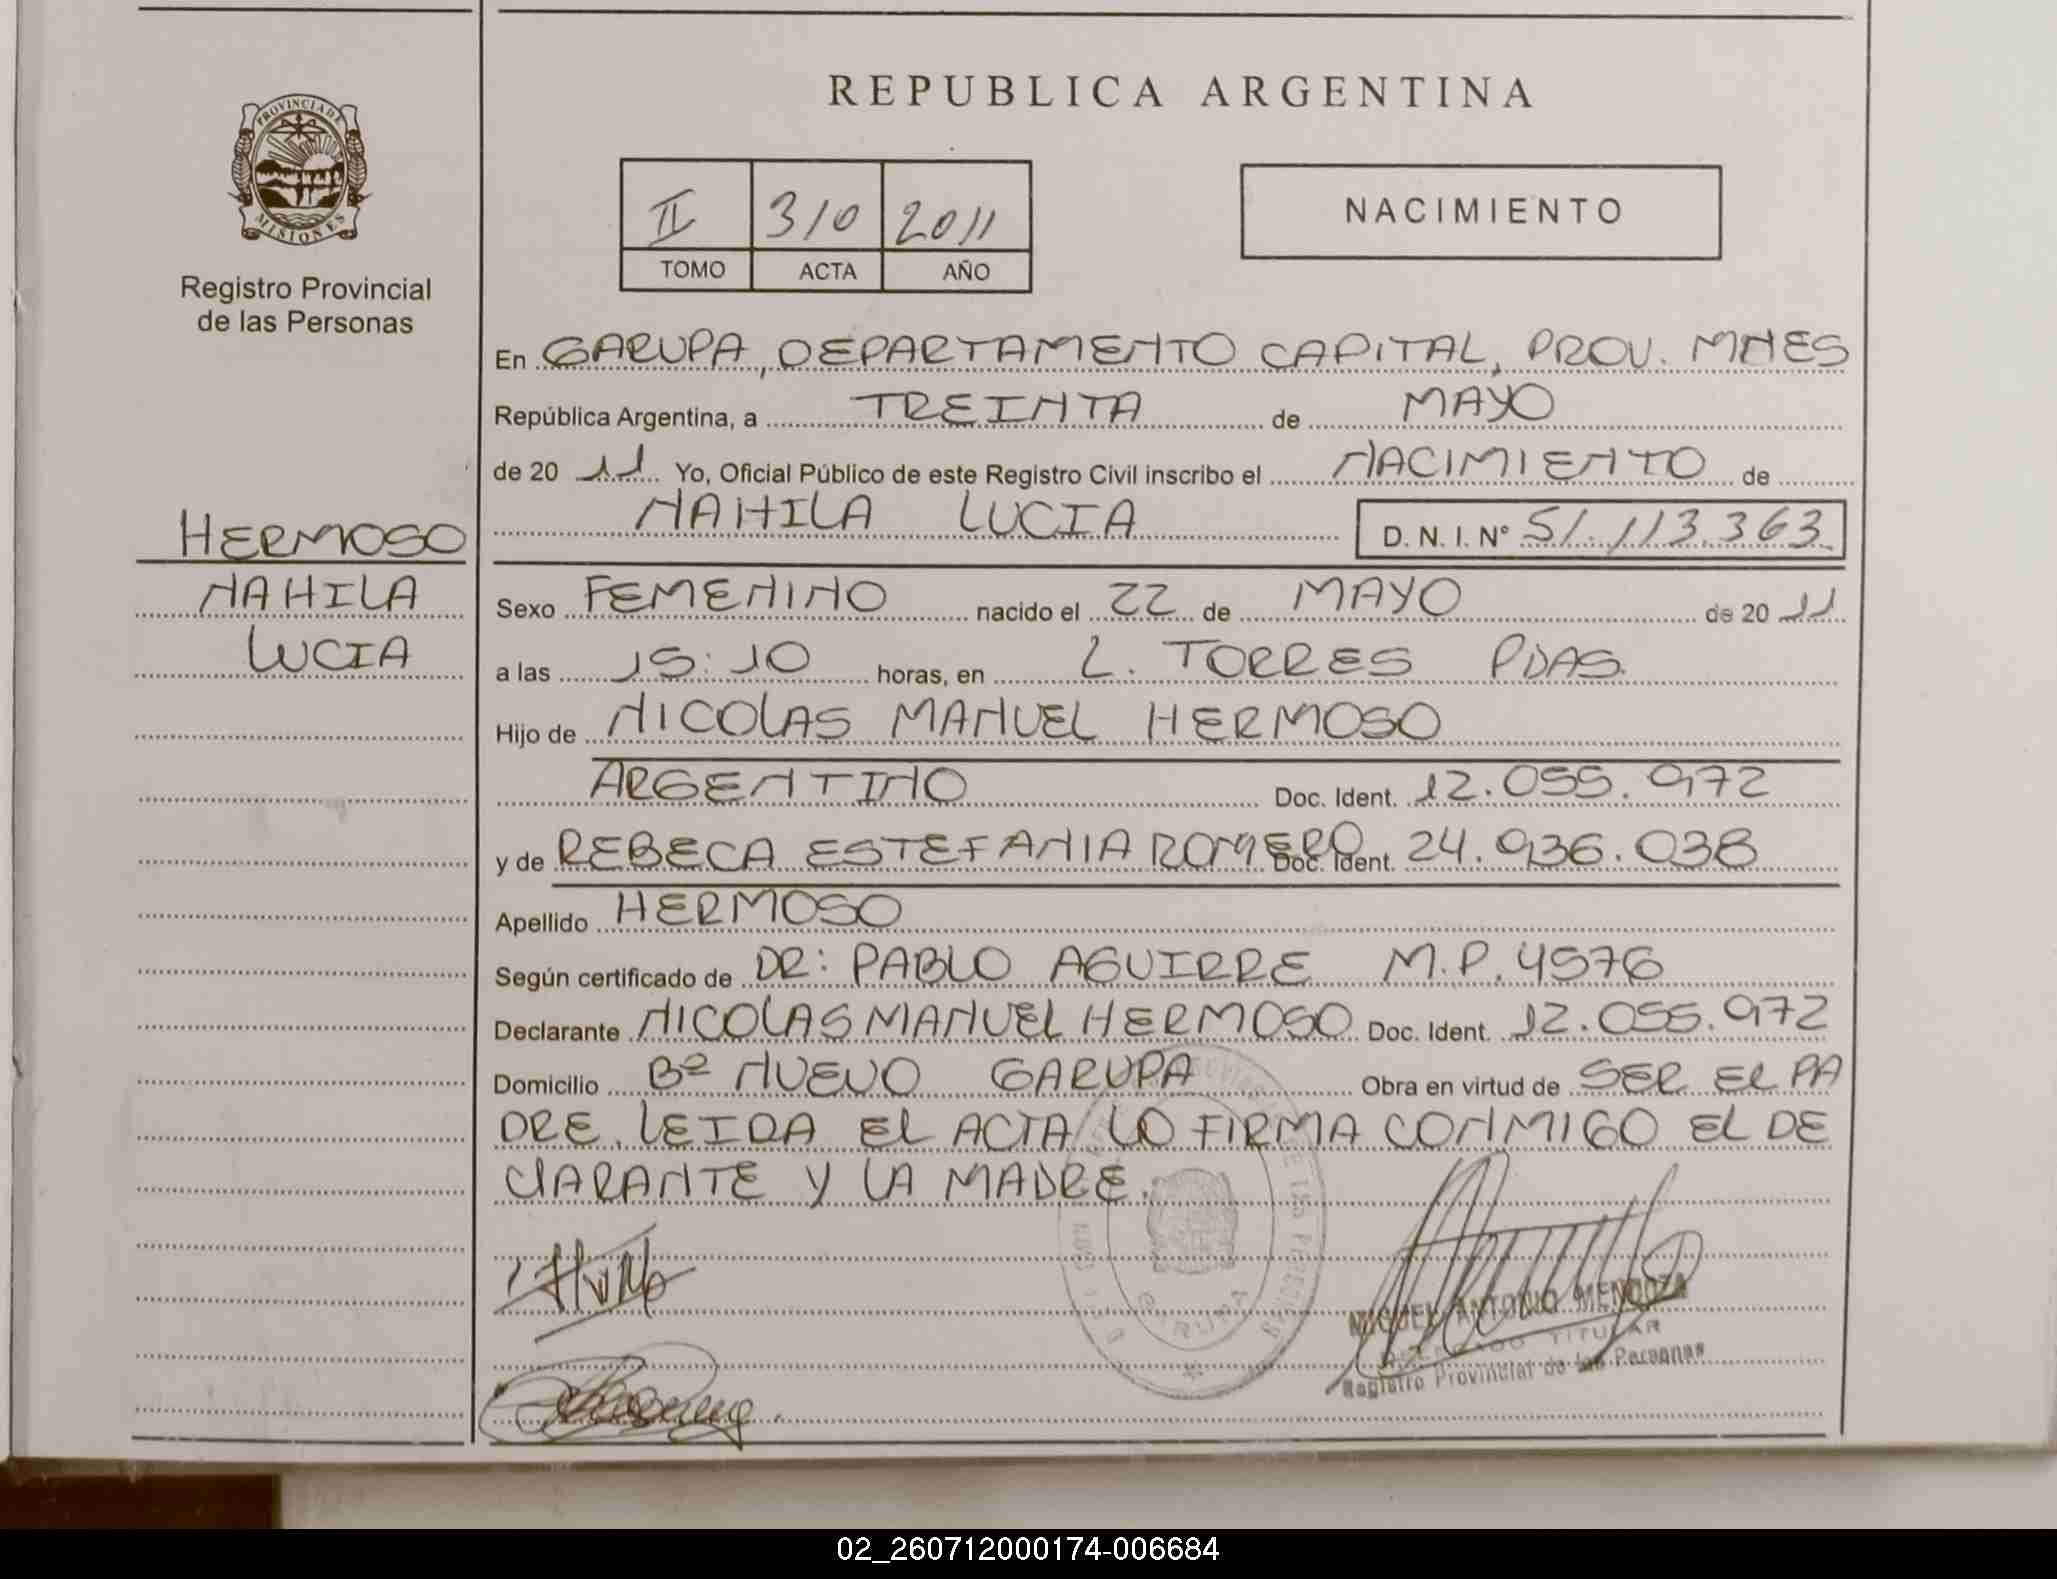 REPUBLICA ARGENTINA
PROVINCIA DE
MISIONES
Registro Provincial
de las Personas
II 310 2011
TOMO ACTA AÑO
NACIMIENTO
En GARUPA, DEPARTAMENTO CAPITAL, PROV. MNES
República Argentina, a TREINTA de MAYO
de 20 11 Yo, Oficial Público de este Registro Civil inscribo el NACIMIENTO de
NAHILA LUCIA D. N. I. Nº 51.113.363
HERMOSO
NAHILA
LUCIA
Sexo FEMENINO nacido el 22 de MAYO de 20 11
a las 15:10 horas, en L. TORRES PDAS.
Hijo de NICOLAS MANUEL HERMOSO
ARGENTINO Doc. Ident. 12.055.972
y de REBECA ESTEFANIA ROMERO Doc. Ident. 24.936.038
Apellido HERMOSO
Según certificado de DR: PABLO AGUIRRE M.P. 4576
Declarante NICOLAS MANUEL HERMOSO Doc. Ident. 12.055.972
Domicilio Bº NUEVO GARUPA Obra en virtud de SER EL PA
DRE. LEIDA EL ACTA LO FIRMA CONMIGO EL DE
CLARANTE Y LA MADRE.
GARUPA
MIGUEL ANTONIO MENDOZA
DELEGADO TITULAR
Registro Provincial de las Personas
02_260712000174-006684